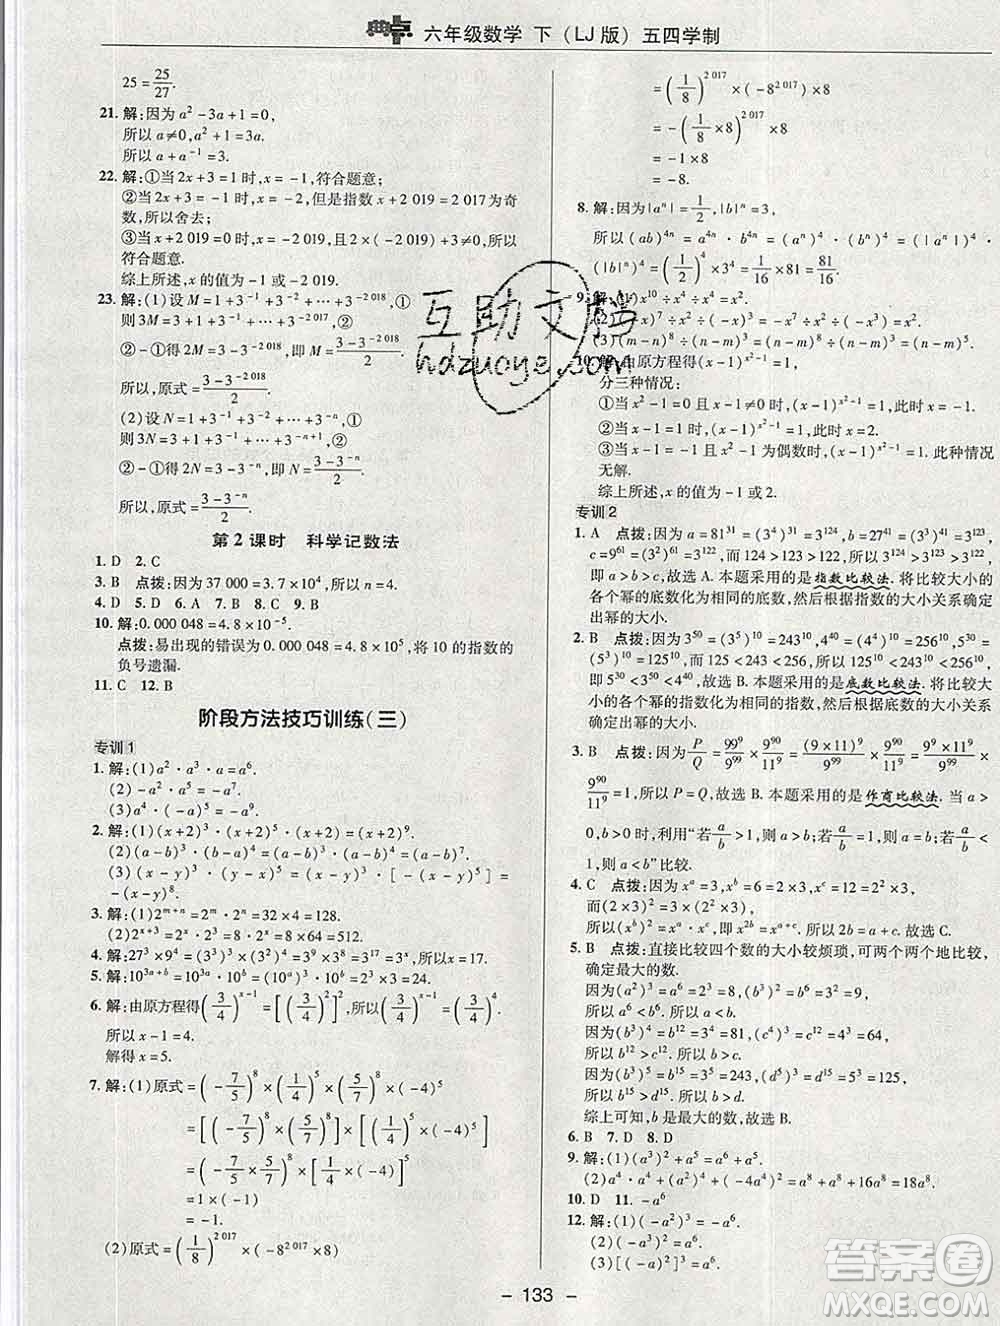 典点 六年级数学 下（LJ版）五四学制
25=25/27.
21. 解:因为 a²-3a+1=0,
所以 a≠0, a²+1=3a.
所以 a+a⁻¹=3.
22. 解:①当 2x+3=1 时, x=-1, 符合题意;
②当 2x+3=-1 时, x=-2, 但是指数 x+2 019=2 017 为奇
数, 所以舍去;
③当 x=-2 019 时, 且 2×(-2 019)+3≠0, 所以
符合题意.
综上所述, x 的值为 -1 或 -2 019.
23. 解:(1)设 M=1+3⁻¹+3⁻²+…+3⁻²⁰¹⁸, ①
则 3M=3+1+3⁻¹+…+3⁻²⁰¹⁷, ②
②-①得 2M=3-3⁻²⁰¹⁸, 即 M=(3-3⁻²⁰¹⁸)/2.
所以, 原式=(3-3⁻²⁰¹⁸)/2.
(2)设 N=1+3⁻¹+3⁻²+…+3⁻ⁿ, ①
则 3N=3+1+3⁻¹+…+3⁻ⁿ⁺¹, ②
②-①得 2N=3-3⁻ⁿ, 即 N=(3-3⁻ⁿ)/2.
所以, 原式=(3-3⁻ⁿ)/2.
第2课时 科学记数法
1. D 2. C
3. B 点拨:因为 37 000=3.7×10⁴, 所以 n=4.
4. D 5. D 6. A 7. B 8. D 9. D
10. 解:0.000 048=4.8×10⁻⁵.
点拨:易出现的错误为 0.000 048=4.8×10⁵, 将 10 的指数的
负号遗漏.
11. C 12. B
阶段方法技巧训练(三)
专训1
1. 解:(1)a²·a³·a=a⁶.
(2)-a²·a⁵=-a⁷.
(3)a⁴·(-a)⁵=-a⁹.
2. 解:(1)(x+2)³·(x+2)⁵·(x+2)=(x+2)⁹.
(2)(a-b)³·(a-b)⁴=(a-b)⁷.
(3)(x-y)³·(y-x)⁵=(x-y)³·[-(x-y)⁵]=
-(x-y)⁸.
3. 解:(1)2ᵐ⁺ⁿ=2ᵐ·2ⁿ=32×4=128.
(2)2ˣ⁺³=2ˣ·2³=64×8=512.
4. 解:27³×9⁴=(3³)³×(3²)⁴=3⁹×3⁸=3¹⁷.
5. 解:10³ᵃ⁺ᵇ=10³ᵃ·10ᵇ=(10ᵃ)³·10ᵇ=2³×3=24.
6. 解:由原方程得(3/4)ˣ⁻¹=[(3/4)²]²=(3/4)⁴.
所以 x-1=4.
解得 x=5.
7. 解:(1)原式=(-7/5)⁸×(1/4)⁵×(-5/7)⁸×(-4)⁵
=[(-7/5)×(-5/7)]⁸×[1/4×(-4)]⁵
=1×(-1)
=-1.
(2)原式=(1/8)²⁰¹⁷×(-8²⁰¹⁷×8)
=(1/8)²⁰¹⁷×(-8²⁰¹⁷)×8
=-(1/8×8)²⁰¹⁷×8
=-1×8
=-8.
8. 解:因为|aⁿ|=1/2, |b|ⁿ=3,
所以(ab)⁴ⁿ=a⁴ⁿ·b⁴ⁿ=(aⁿ)⁴·(bⁿ)⁴=(|aⁿ|)⁴·
(|b|ⁿ)⁴=(1/2)⁴×3⁴=1/16×81=81/16.
9. 解:(1)x¹⁰÷x⁴÷x⁴=x².
(3)(m-n)⁸÷(n-m)³=(n-m)⁵.
10. 解:由原方程得(x-1)^(x²-1)=1,
分三种情况:
①当 x²-1=0 且 x-1≠0 时, (x-1)^(x²-1)=1, 此时 x=-1.
②当 x-1=1 时, (x-1)^(x²-1)=1, 此时 x=2.
③当 x-1=-1 且 x²-1 为偶数时, (x-1)^(x²-1)=1, 此种情况
无解.
综上所述, x 的值为 -1 或 2.
专训2
1. A 点拨:因为 a=81³¹=(3⁴)³¹=3¹²⁴, b=27⁴¹=(3³)⁴¹=3¹²³,
c=9⁶¹=(3²)⁶¹=3¹²², 所以 3¹²⁴>3¹²³>3¹²², 所以 81³¹>27⁴¹>9⁶¹,
即 a>b>c, 故选 A. 本题采用的是指数比较法. 将比较大小的
各个幂的底数化为相同的底数, 然后根据指数的大小关系确定
出幂的大小.
2. B 点拨:因为 3⁵⁰=(3⁵)¹⁰=243¹⁰, 4⁴⁰=(4⁴)¹⁰=256¹⁰, 5³⁰=
(5³)¹⁰=125¹⁰, 而 125<243<256, 所以 125¹⁰<243¹⁰<256¹⁰,
即 5³⁰<3⁵⁰<4⁴⁰. 故选 B. 本题采用的是底数比较法. 将比较大
小的各个幂的指数化为相同的指数, 然后根据底数的大小关系
确定出幂的大小.
3. B 点拨:因为 P/Q=99⁹/99⁹×9⁹⁰/11⁹=(9×11)⁹/9⁹⁹×9⁹⁰/11⁹=9⁹×11⁹/9⁹⁹×
9⁹⁰/11⁹=1, 所以 P=Q, 故选 B. 本题采用的是作商比较法. 当 a>
0, b>0 时, 利用“若 a/b>1, 则 a>b; 若 a/b=1, 则 a=b; 若 a/b<
1, 则 a<b”比较.
4. C 点拨:因为 xᵃ=3, xᵇ=6=2×3, xᶜ=12=2²×3,
而(2×3)²=3×(2²×3),
所以(xᵇ)²=xᵃ·xᶜ, 即 x²ᵇ=xᵃ⁺ᶜ. 所以 2b=a+c. 故选 C.
5. B 点拨:直接比较四个数的大小较烦琐, 可两个两个地比较,
确定最大的数.
因为(a²)³=2³=8, (c³)²=3²=9,
所以 a⁶<c⁶. 所以 a<c.
因为(b³)⁴=3⁴=81, (c⁴)³=4³=64,
所以 b¹²>c¹². 所以 b>c.
因为(b³)⁵=3⁵=243, (d⁵)³=5³=125,
所以 b¹⁵>d¹⁵. 所以 b>d.
综上可知, b 是最大的数, 故选 B.
6. B 7. D 8. D
9. 解:(1)(a³)²+a⁶=a⁶+a⁶=2a⁶.
10. D 11. -a⁶
12. 解:(1)(-a²)³=-a⁶.
(2)(-a³)²=a⁶.
- 133 -
互助文档
hdzuoye.com
答案圈
MXQE.COM